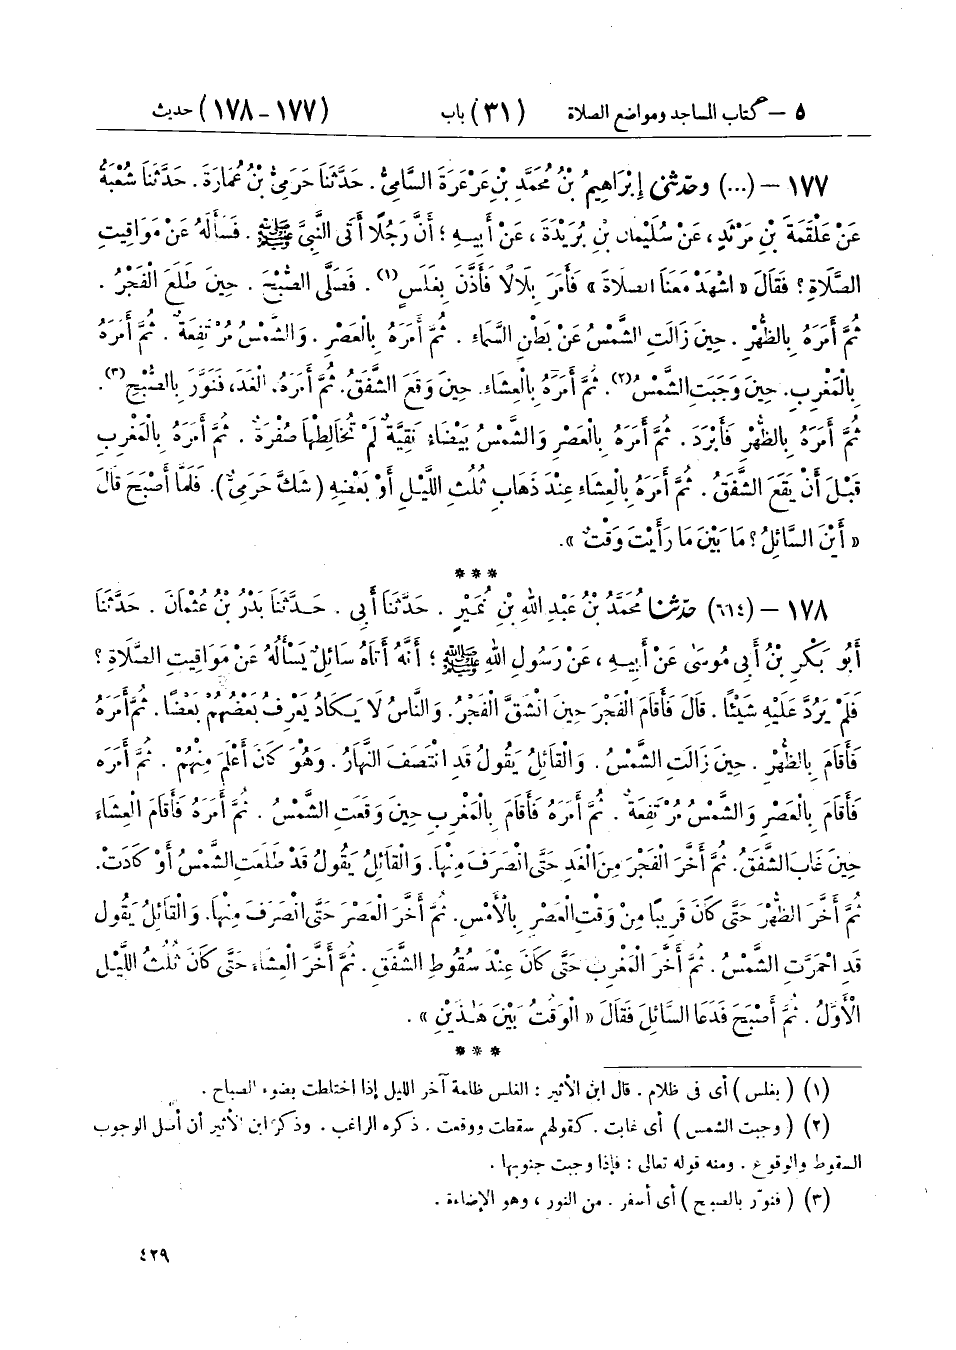 ٥ — كتاب المساجد ومواضع الصلاة (٣١) باب (١٧٧-١٧٨) حديث
١٧٧ — (...) وحَدَّثَنِي إِبْرَاهِيمُ بْنُ مُحَمَّدِ بْنِ عَرْعَرَةَ السَّامِيُّ. حَدَّثَنَا حَرَمِيُّ بْنُ عُمَارَةَ. حَدَّثَنَا شُعْبَةُ
عَنْ عَلْقَمَةَ بْنِ مَرْثَدٍ، عَنْ سُلَيْمَانَ بْنِ بُرَيْدَةَ، عَنْ أَبِيهِ؛ أَنَّ رَجُلًا أَتَى النَّبِيَّ ﷺ. فَسَأَلَهُ عَنْ مَوَاقِيتِ
الصَّلَاةِ؟ فَقَالَ «اشْهَدْ مَعَنَا الصَّلَاةَ» فَأَمَرَ بِلَالًا فَأَذَّنَ بِغَلَسٍ(١). فَصَلَّى الصُّبْحَ. حِينَ طَلَعَ الْفَجْرُ.
ثُمَّ أَمَرَهُ بِالظُّهْرِ. حِينَ زَالَتِ الشَّمْسُ عَنْ بَطْنِ السَّمَاءِ. ثُمَّ أَمَرَهُ بِالْعَصْرِ. وَالشَّمْسُ مُرْتَفِعَةٌ. ثُمَّ أَمَرَهُ
بِالْمَغْرِبِ. حِينَ وَجَبَتِ الشَّمْسُ(٢). ثُمَّ أَمَرَهُ بِالْعِشَاءِ. حِينَ وَقَعَ الشَّفَقُ. ثُمَّ أَمَرَهُ، الْغَدَ، فَنَوَّرَ بِالصُّبْحِ(٣).
ثُمَّ أَمَرَهُ بِالظُّهْرِ فَأَبْرَدَ. ثُمَّ أَمَرَهُ بِالْعَصْرِ وَالشَّمْسُ بَيْضَاءُ نَقِيَّةٌ لَمْ تُخَالِطْهَا صُفْرَةٌ. ثُمَّ أَمَرَهُ بِالْمَغْرِبِ
قَبْلَ أَنْ يَقَعَ الشَّفَقُ. ثُمَّ أَمَرَهُ بِالْعِشَاءِ عِنْدَ ذَهَابِ ثُلُثِ اللَّيْلِ أَوْ بَعْضِهِ (شَكَّ حَرَمِيٌّ). فَلَمَّا أَصْبَحَ قَالَ
«أَيْنَ السَّائِلُ؟ مَا بَيْنَ مَا رَأَيْتَ وَقْتٌ».
***
١٧٨ — (٦١٤) حَدَّثَنَا مُحَمَّدُ بْنُ عَبْدِ اللهِ بْنِ نُمَيْرٍ. حَدَّثَنَا أَبِي. حَدَّثَنَا بَدْرُ بْنُ عُثْمَانَ. حَدَّثَنَا
أَبُو بَكْرِ بْنُ أَبِي مُوسَى عَنْ أَبِيهِ، عَنْ رَسُولِ اللهِ ﷺ؛ أَنَّهُ أَتَاهُ سَائِلٌ يَسْأَلُهُ عَنْ مَوَاقِيتِ الصَّلَاةِ؟
فَلَمْ يَرُدَّ عَلَيْهِ شَيْئًا. قَالَ فَأَقَامَ الْفَجْرَ حِينَ انْشَقَّ الْفَجْرُ. وَالنَّاسُ لَا يَكَادُ يَعْرِفُ بَعْضُهُمْ بَعْضًا. ثُمَّ أَمَرَهُ
فَأَقَامَ بِالظُّهْرِ. حِينَ زَالَتِ الشَّمْسُ. وَالْقَائِلُ يَقُولُ قَدِ انْتَصَفَ النَّهَارُ. وَهُوَ كَانَ أَعْلَمَ مِنْهُمْ. ثُمَّ أَمَرَهُ
فَأَقَامَ بِالْعَصْرِ وَالشَّمْسُ مُرْتَفِعَةٌ. ثُمَّ أَمَرَهُ فَأَقَامَ بِالْمَغْرِبِ حِينَ وَقَعَتِ الشَّمْسُ. ثُمَّ أَمَرَهُ فَأَقَامَ الْعِشَاءَ
حِينَ غَابَ الشَّفَقُ. ثُمَّ أَخَّرَ الْفَجْرَ مِنَ الْغَدِ حَتَّى انْصَرَفَ مِنْهَا. وَالْقَائِلُ يَقُولُ قَدْ طَلَعَتِ الشَّمْسُ أَوْ كَادَتْ.
ثُمَّ أَخَّرَ الظُّهْرَ حَتَّى كَانَ قَرِيبًا مِنْ وَقْتِ الْعَصْرِ بِالْأَمْسِ. ثُمَّ أَخَّرَ الْعَصْرَ حَتَّى انْصَرَفَ مِنْهَا. وَالْقَائِلُ يَقُولُ
قَدِ احْمَرَّتِ الشَّمْسُ. ثُمَّ أَخَّرَ الْمَغْرِبَ حَتَّى كَانَ عِنْدَ سُقُوطِ الشَّفَقِ. ثُمَّ أَخَّرَ الْعِشَاءَ حَتَّى كَانَ ثُلُثُ اللَّيْلِ
الْأَوَّلُ. ثُمَّ أَصْبَحَ فَدَعَا السَّائِلَ فَقَالَ «الْوَقْتُ بَيْنَ هَذَيْنِ».
***
(١) (بغلس) أى فى ظلام. قال ابن الأثير: الغلس ظلمة آخر الليل إذا اختلطت بضوء الصباح.
(٢) (وجبت الشمس) أى غابت. كقولهم سقطت ووقعت. ذكره الراغب. وذكر ابن الأثير أن أصل الوجوب
السقوط والوقوع. ومنه قوله تعالى: فإذا وجبت جنوبها.
(٣) (فنوّر بالصبح) أى أسفر. من النور، وهو الإضاءة.
٤٢٩